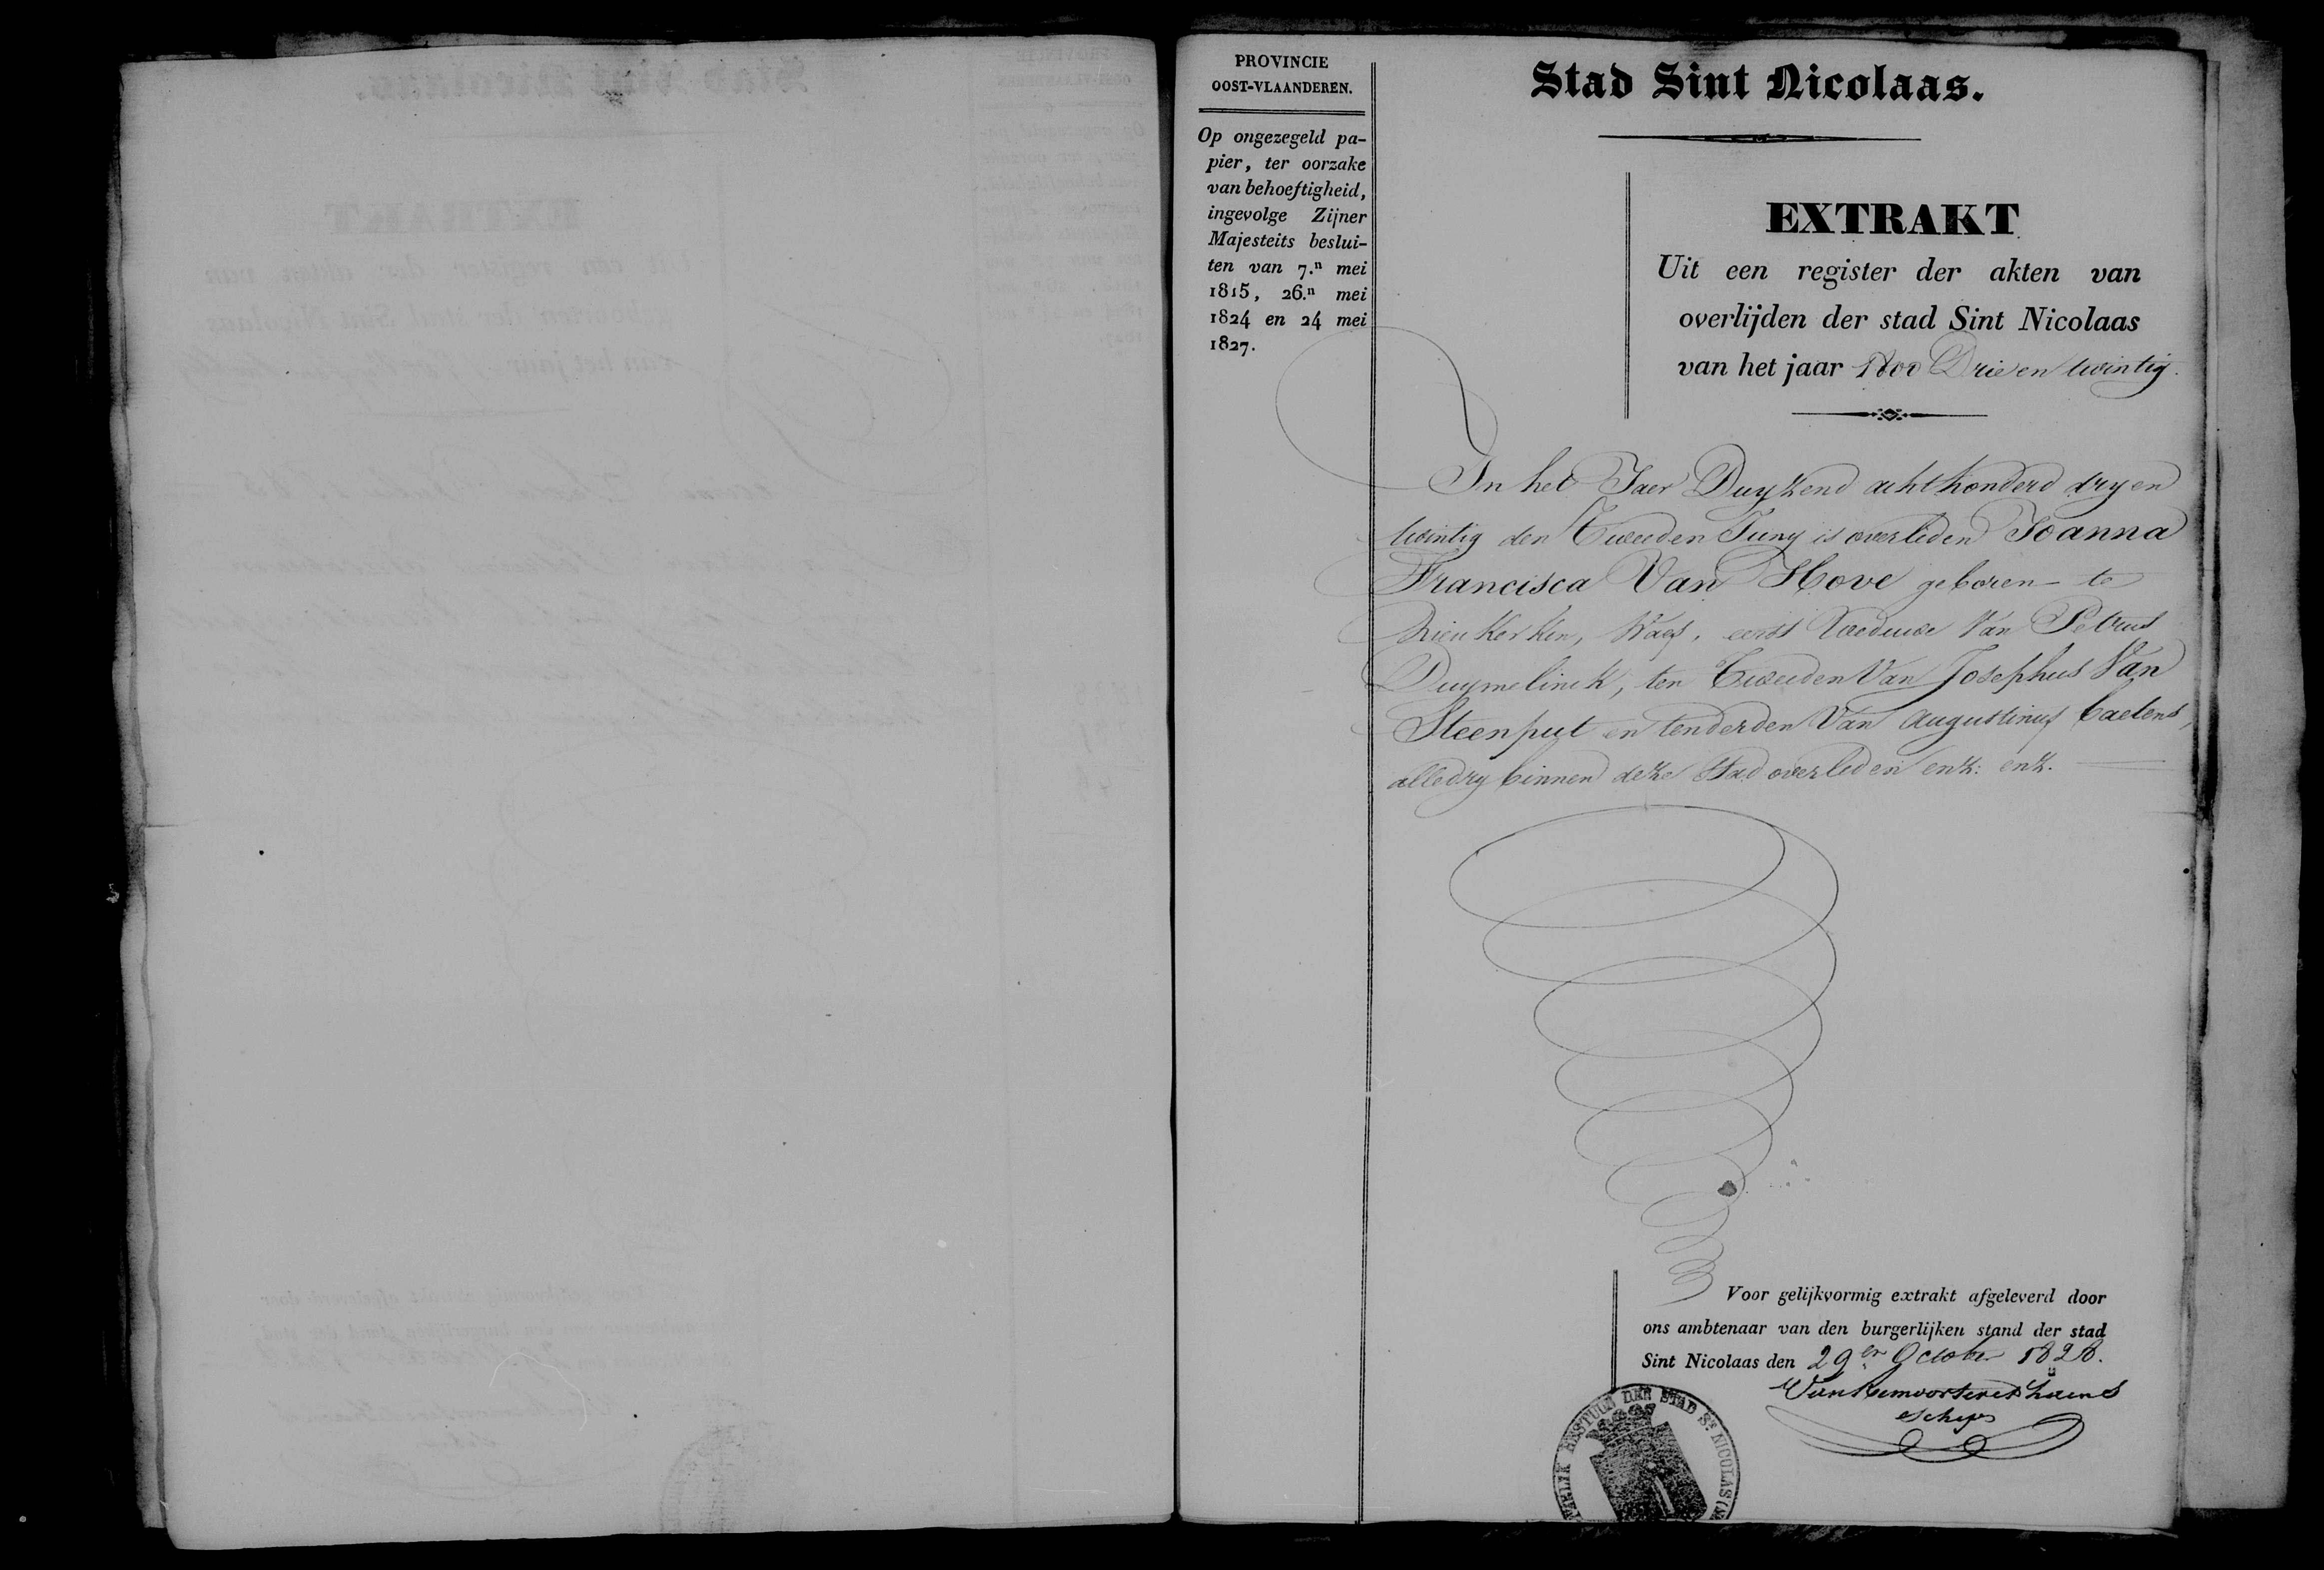 PROVINCIE
OOST-VLAANDEREN.
Op ongezegeld pa-
pier, ter oorzake
van behoeftigheid,
ingevolge Zijner
Majesteits beslui-
ten van 7.n mei
1815, 26.n mei
1824 en 24 mei
1827.
Stad Sint Nicolaas.
EXTRAKT
Uit een register der akten van
overlijden der stad Sint Nicolaas
van het jaar 1800 Drie en twintig.
In het Jaer Duyzend acht honderd dry en
twintig den Tweeden Juny is overleden Joanna
Francisca Van Hove geboren te
Nieukerken, Waes, eerst Weduwe Van Petrus
Duymelinck, ten Tweeden Van Josephus Van
Steenput en tenderden Van Augustinus Caelens,
alledry binnen deze Stad overleden enz: enz.
Voor gelijkvormig extrakt afgeleverd door
ons ambtenaar van den burgerlijken stand der stad
Sint Nicolaas den 29en October 1828.
schepen
BESTUUR DER STAD St. NICOLAS